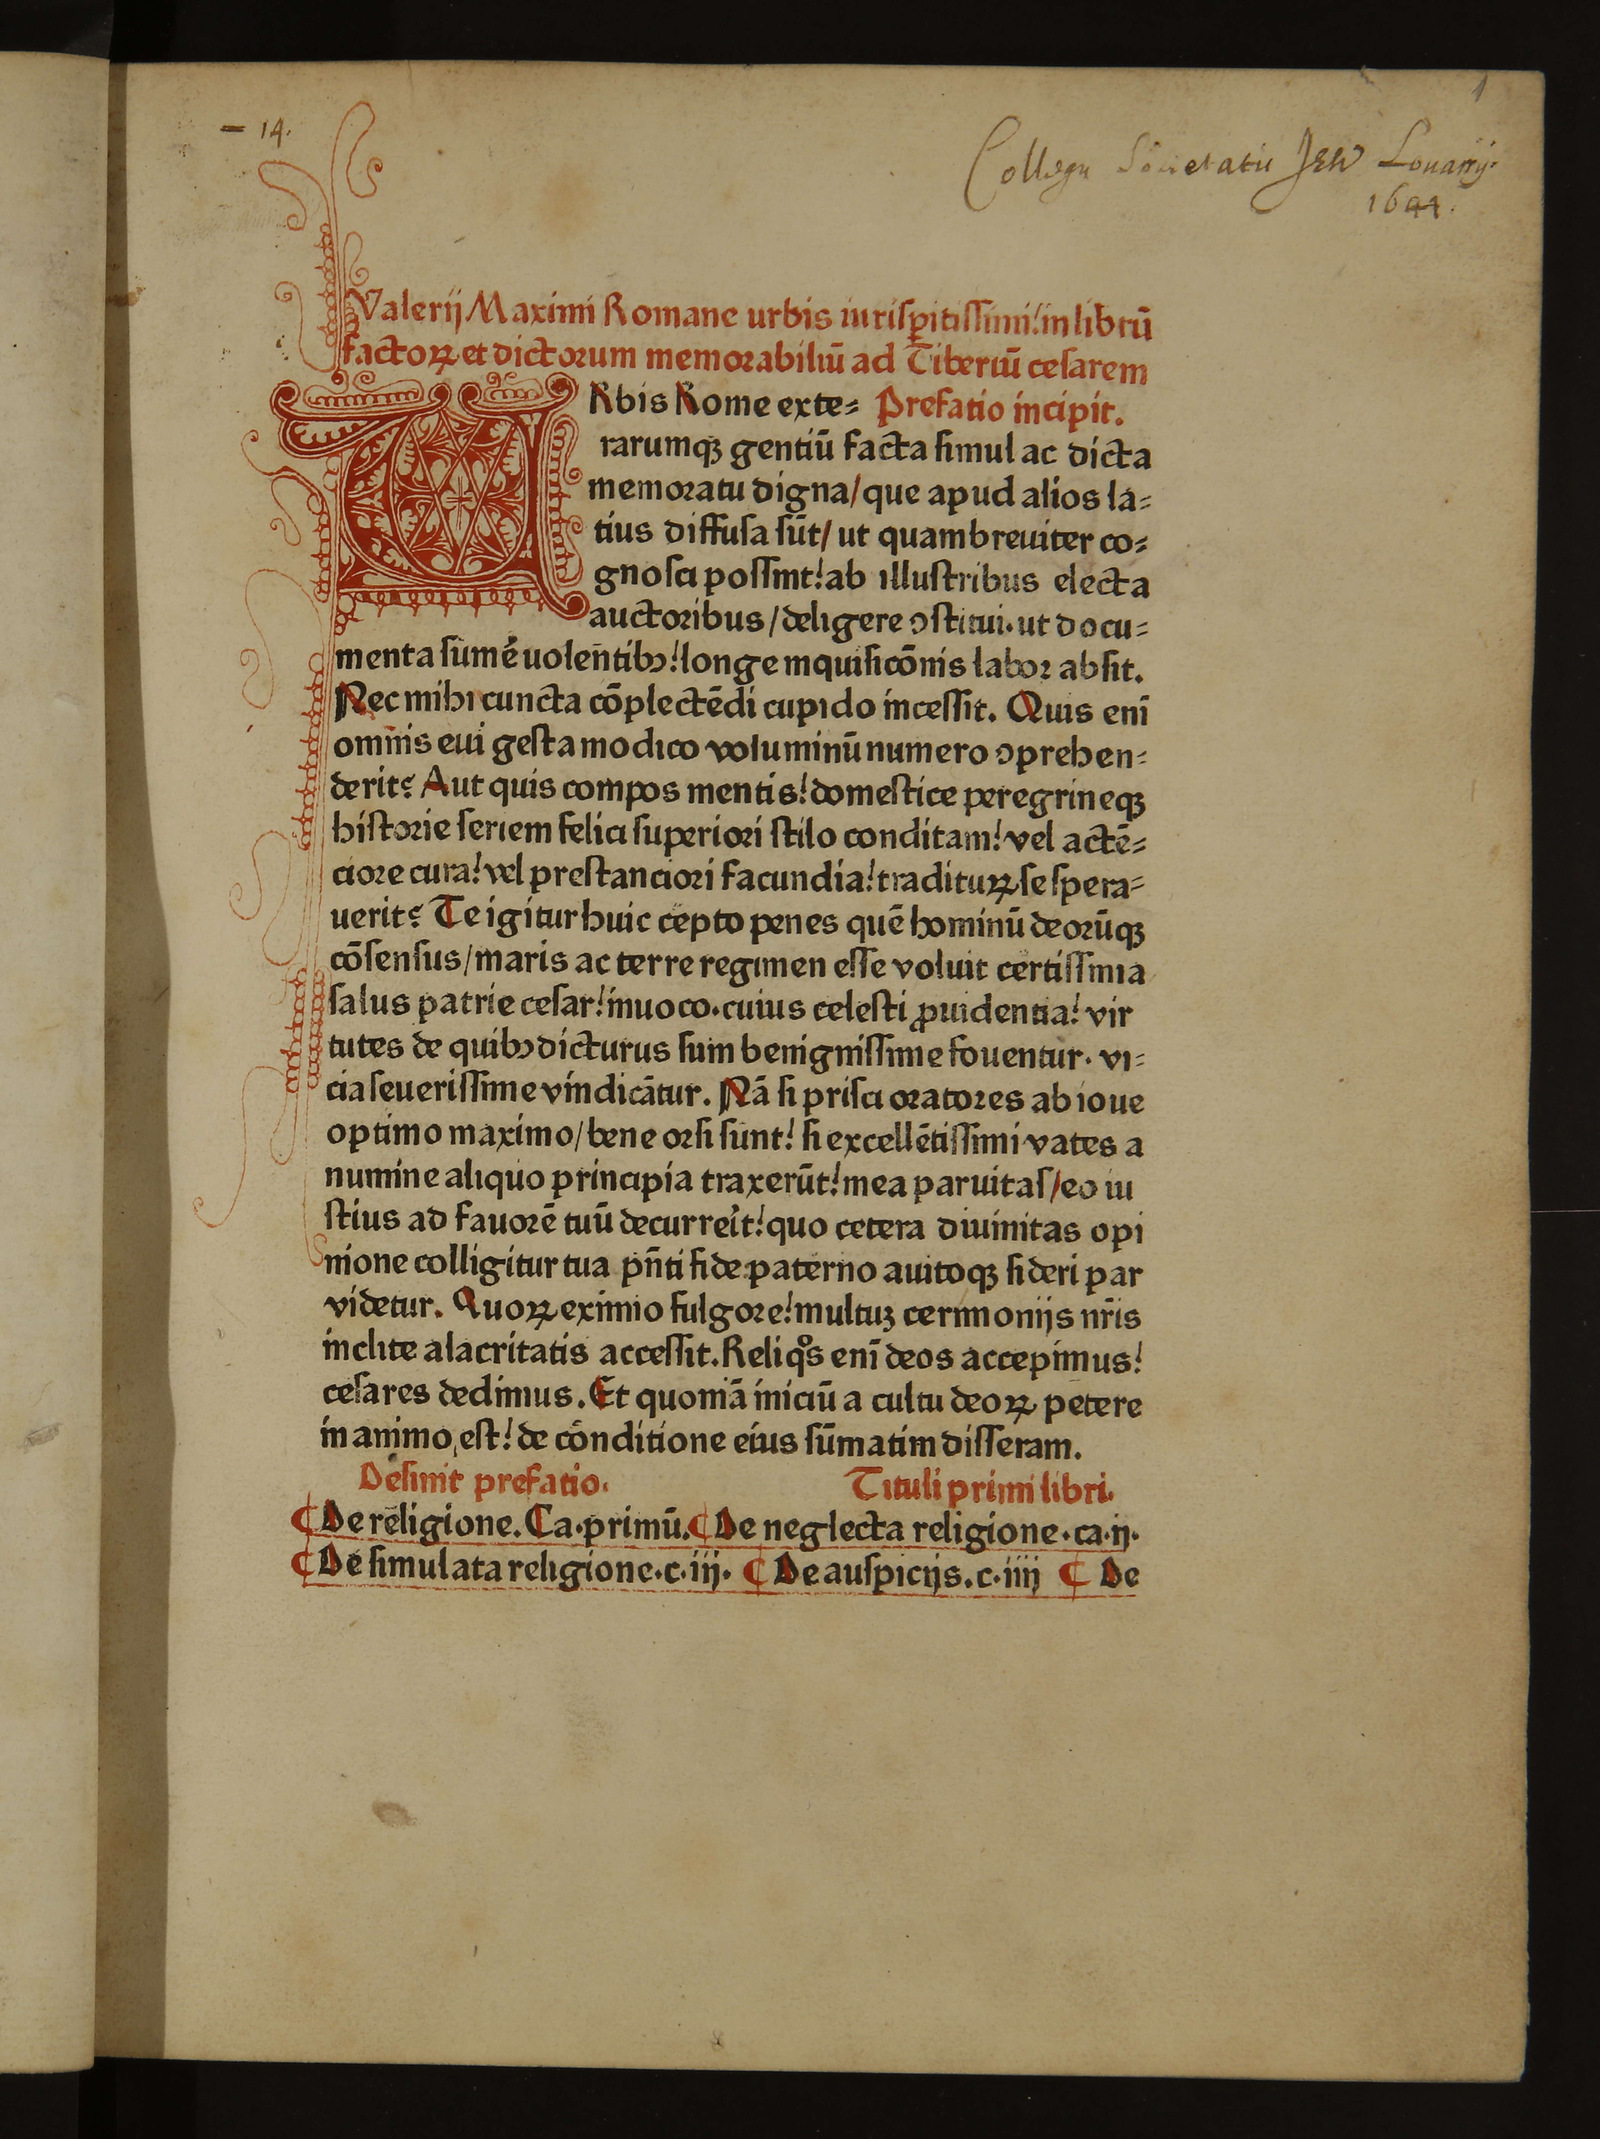 - 14.
1
Collegij Societatis Jesu Louanij.
1644.
Valerij Maximi Romane urbis iurisꝑitissimi! in librū
factoꝝ et dictorum memorabiliū ad Tiberiū cesarem
URbis Rome exte= Prefatio incipit.
rarumqꝫ gentiū facta simul ac dicta
memoratu digna/que apud alios la=
tius diffusa sūt/ ut quambreuiter co=
gnosci possint! ab illustribus electa
auctoribus/deligere ɔstitui. ut docu=
menta sumē uolentibꝰ! longe inquisicōnis labor absit.
Nec mihi cuncta cōplectēdi cupido incessit. Quis enī
omnis eui gesta modico voluminū numero ɔprehen=
derit? Aut quis compos mentis! domestice peregrineqꝫ
historie seriem felici superiori stilo conditam! vel actē=
ciore cura! vel prestanciori facundia! traditurꝝ se spera=
uerit? Te igitur huic cepto penes quē hominū deorūqꝫ
cōsensus/maris ac terre regimen esse voluit certissima
salus patrie cesar! inuoco. cuius celesti ꝓuidentia! vir
tutes de quibꝰ dicturus sum benignissime fouentur. vi=
cia seuerissime vindicātur. Nā si prisci oratores ab ioue
optimo maximo/bene orsi sunt! si excellētissimi vates a
numine aliquo principia traxerūt! mea paruitas/eo iu
stius ad fauorē tuū decurrerīt! quo cetera diuinitas opi
nione colligitur tua pn̄ti fide paterno auitoqꝫ sideri par
videtur. Quoꝝ eximio fulgore! multuꝫ cerimonijs nr̄is
inclite alacritatis accessit. Reliqᵒs enī deos accepimus!
cesares dedimus. Et quoniā iniciū a cultu deoꝝ petere
in animo est! de cōnditione eius sūmatim disseram.
Desinit prefatio. Tituli primi libri.
¶ De religione. Ca. primū. ¶ De neglecta religione. ca. ij.
¶ De simulata religione. c. iij. ¶ De auspicijs. c. iiij ¶ De